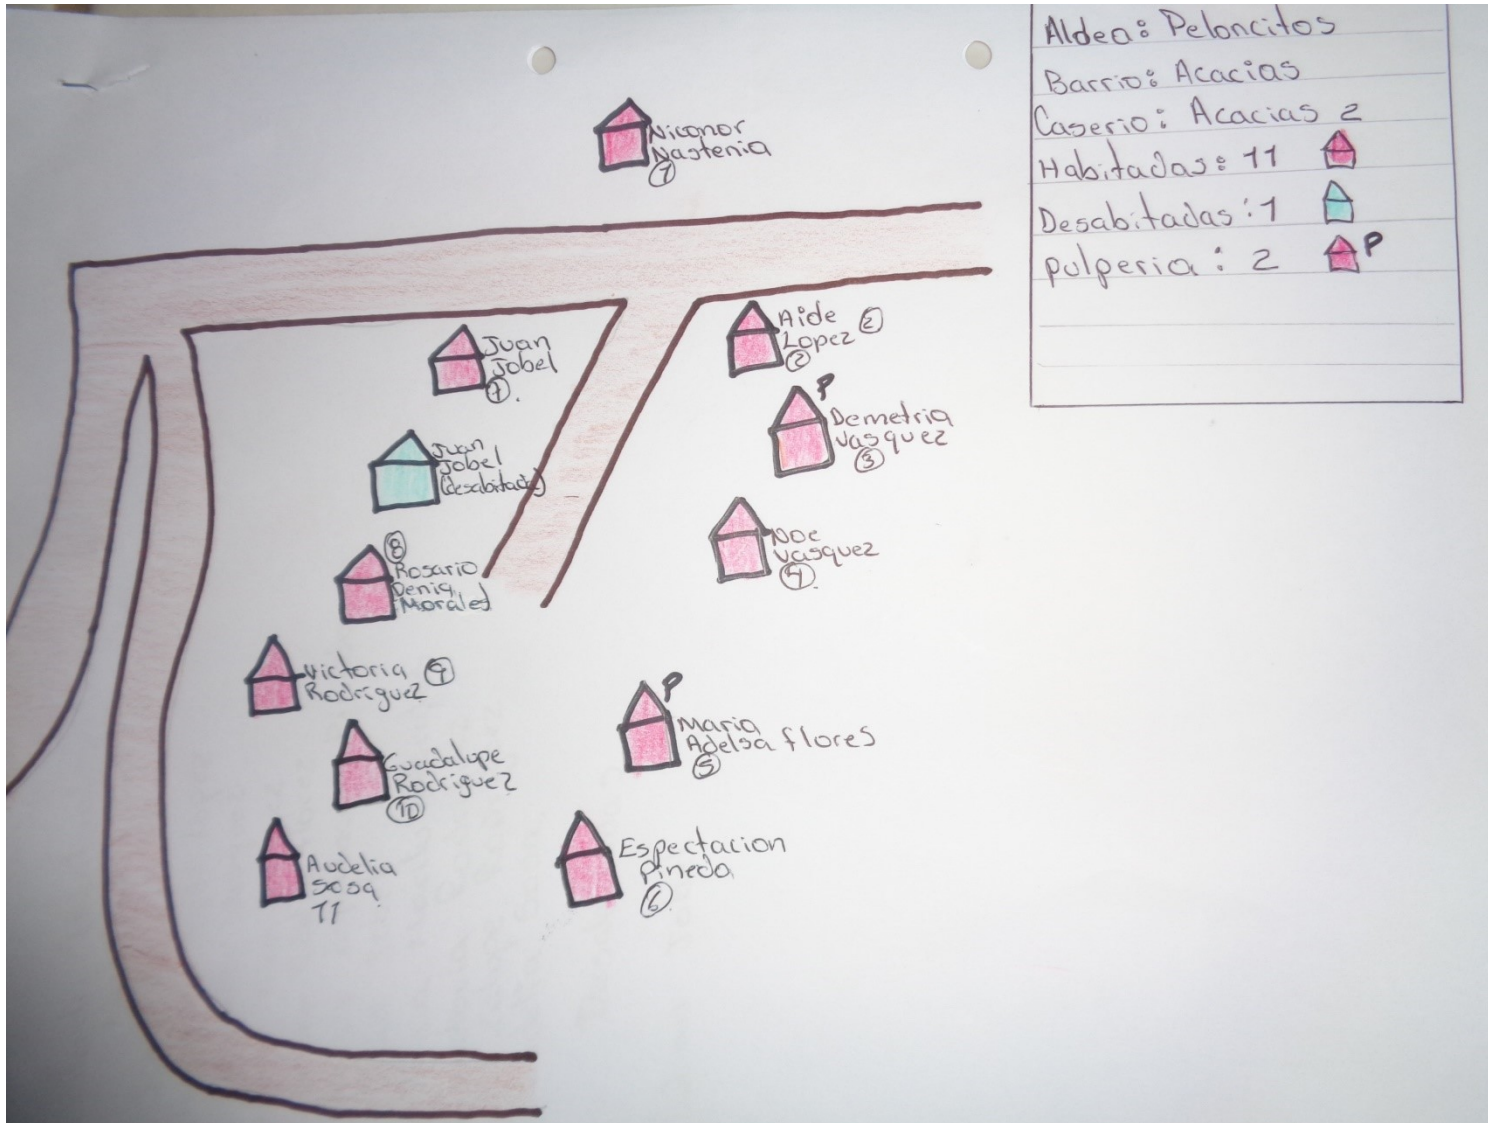 Aldea: Peloncitos
Barrio: Acacias
Caserio: Acacias 2
Habitadas: 11
Desabitadas: 1
pulperia: 2 P
Niconor
Nastenia
1
Juan
Jobel
7.
Aide 2
Lopez
2
P
Demetria
Vasquez
3
Juan
Jobel
(desabitada)
Noe
Vasquez
4
8
Rosario
Denia
Morales
Victoria 9
Rodriguez
P
Maria
Adelsa flores
5
Guadalupe
Rodriguez
10
Espectacion
Pineda
6
Audelia
Sosa
11